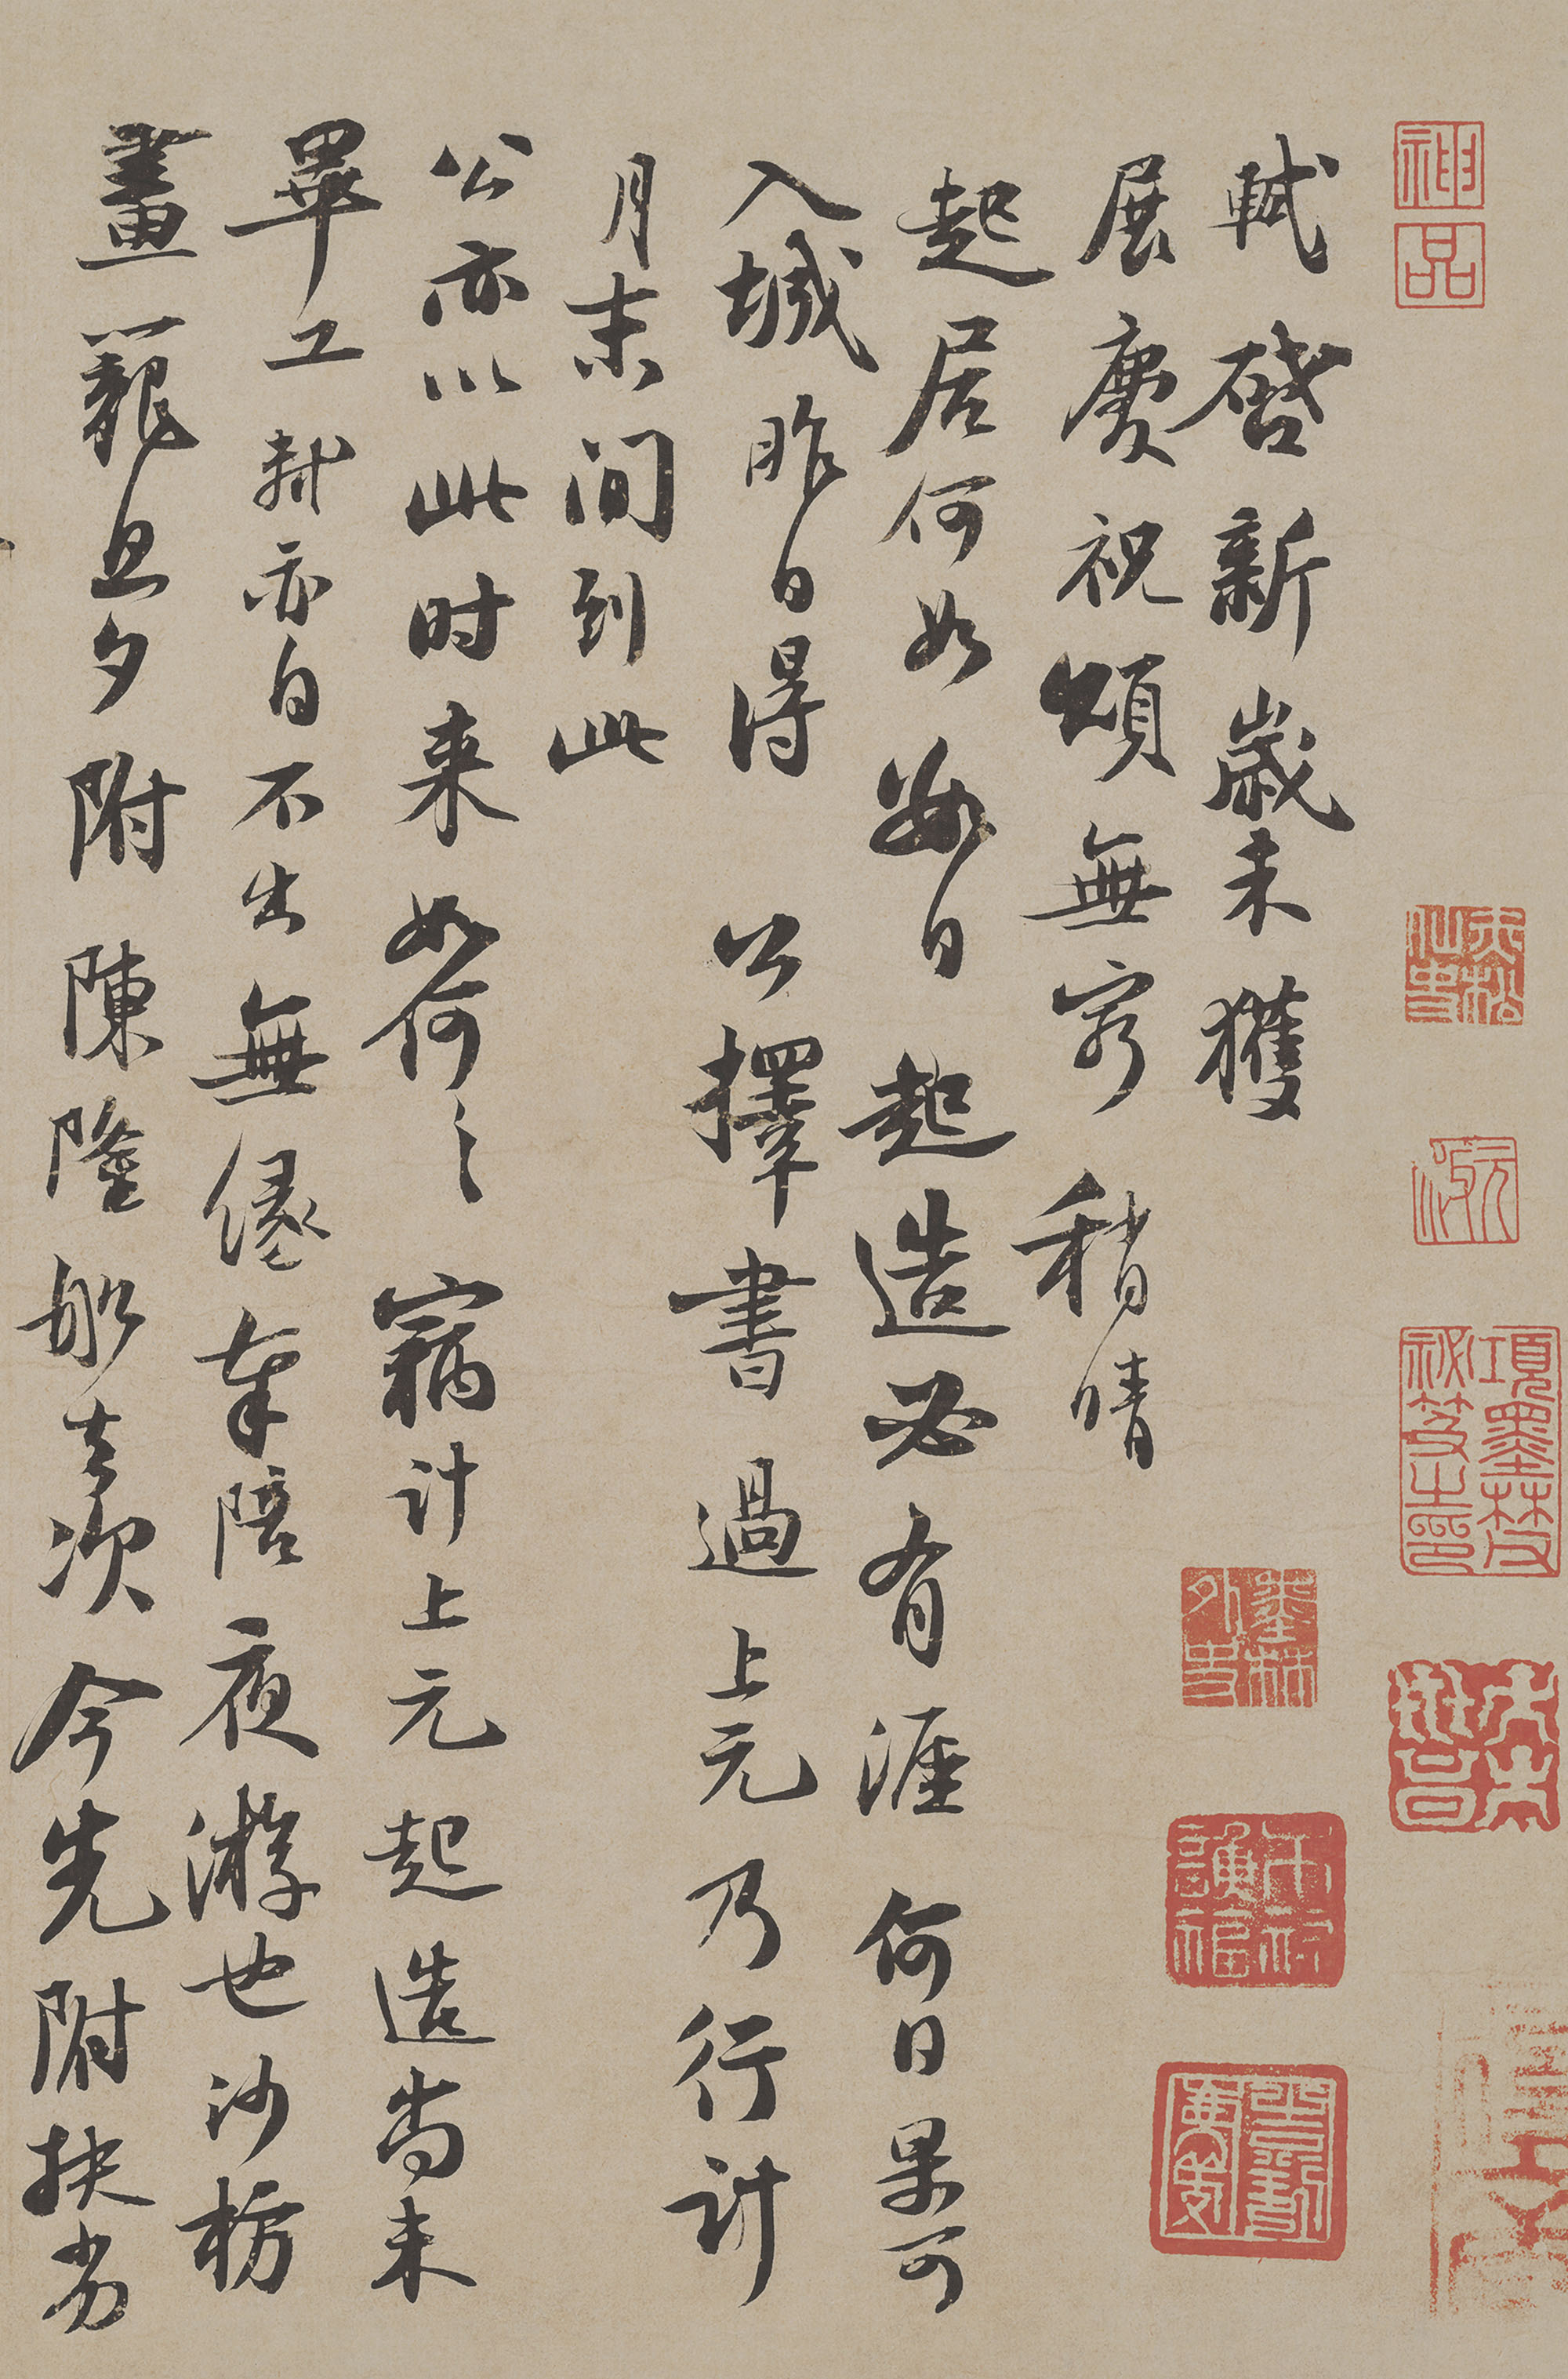 軾啓新歲未獲
展慶祝頌無窮稍晴
起居何如數日起造必有涯何日果可
入城昨日得公擇書過上元乃行計
月末間到此
公亦以此時来如何〻竊計上元起造尚未
畢工軾亦自不出無緣奉陪夜游也沙枋
畫籠旦夕附陳隆船去次今先附扶劣
神品
項墨林父祕笈之印